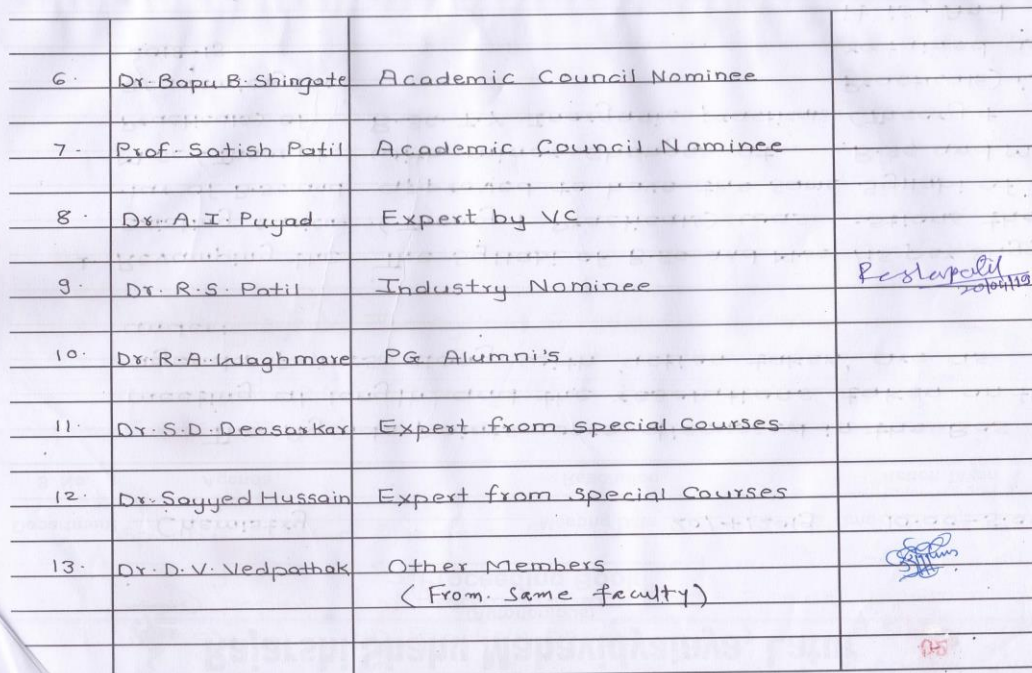 6. Dr. Bapu B. Shingate Academic Council Nominee
7. Prof. Satish Patil Academic Council Nominee
8. Dr. A. I. Puyad Expert by VC
9. Dr. R. S. Patil Industry Nominee
20/04/19
10. Dr. R. A. Waghmare PG Alumni's
11. Dr. S. D. Deosarkar Expert from special Courses
12. Dr. Sayyed Hussain Expert from special Courses
13. Dr. D. V. Vedpathak Other Members
(From same faculty)
05